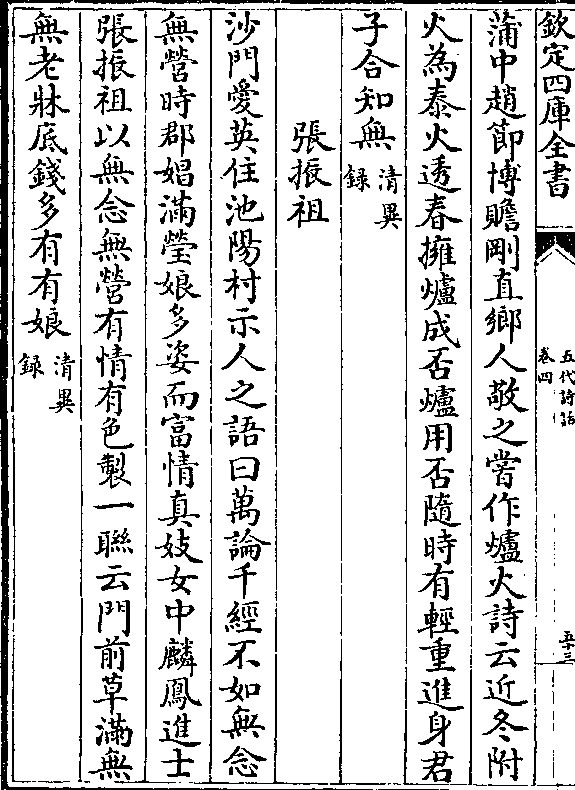 欽定四庫全書
五代詩話
卷四
五十三
蒲中趙節博贍剛直鄉人敬之嘗作爐火詩云近冬附
火為泰火透春擁爐成否爐用否隨時有輕重進身君
子合知無清異
録
張振祖
沙門愛英住池陽村示人之語曰萬論千經不如無念
無營時郡娼滿瑩娘多姿而富情真妓女中麟鳳進士
張振祖以無念無營有情有色製一聯云門前草滿無
無老牀底錢多有有娘清異
録